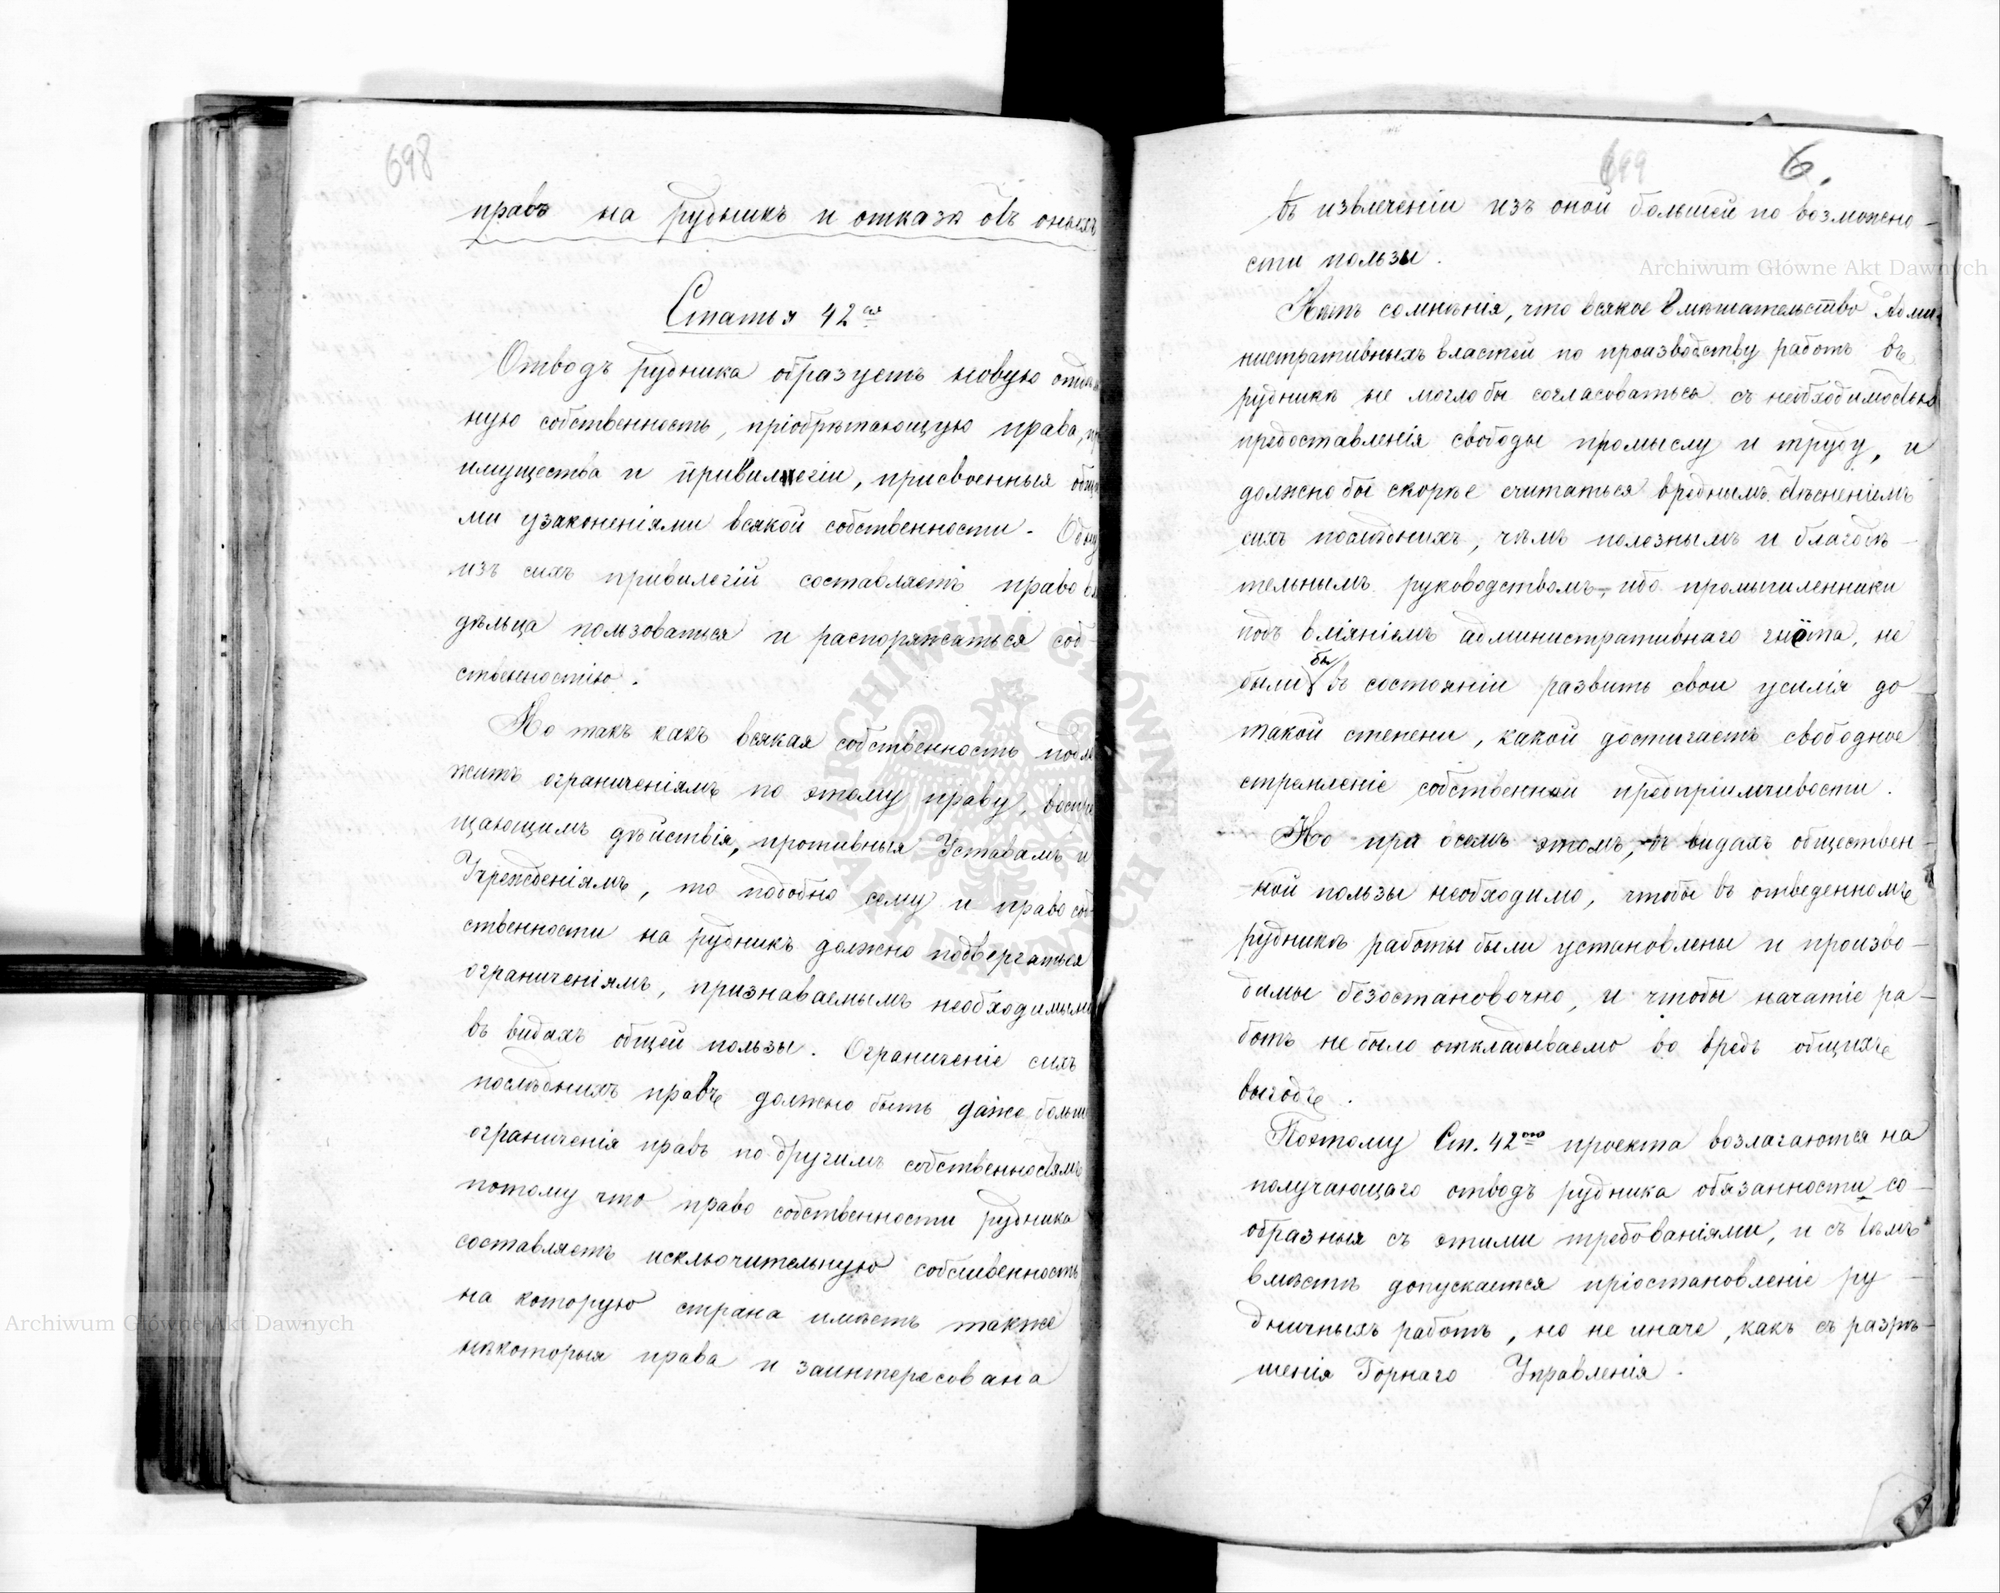 698
правъ на рудникъ и отказа отъ оныхъ
Статья 42ая
Отводъ рудника образуетъ новую отдѣль
ную собственность, пріобрѣтающую права, пр
имущества и привилегіи, присвоенныя общи
ми узаконеніями всякой собственности. Одну
изъ сихъ привилегій составляетъ право вла
дѣльца пользоваться и распоряжаться соб-
ственностію.
Но такъ какъ всякая собственность подле
житъ ограниченіямъ по этому праву, воспре
щающимъ дѣйствія, противныя Уставамъ и
Учрежденіямъ, то подобно сему и право соб
ственности на рудникъ должно подвергаться
ограниченіямъ, признаваемымъ необходимыми
въ видахъ общей пользы. Ограниченіе сихъ
послѣднихъ правъ должно быть даже больше
ограниченія правъ по другимъ собственностямъ
потому что право собственности рудника
составляетъ исключительную собственность
на которую страна имѣетъ также
нѣкоторыя права и заинтересована
699 6.
въ извлеченіи изъ оной большей по возможно-
сти пользы.
Нѣтъ сомнѣнія, что всякое вмѣшательство Адми
нистративныхъ властей по производству работъ въ
рудникѣ не моглобы согласоваться съ необходимостью
предоставленія свободы промыслу и труду, и
должно бы скорѣе считаться вреднымъ стѣсненіемъ
сихъ послѣднихъ, чѣмъ полезнымъ и благодѣ-
тельнымъ руководствомъ, ибо промышленники
подъ вліяніемъ административнаго гнёта, не
были бы въ состояніи развить свои усилія до
такой степени, какой достигаетъ свободное
стремленіе собственной предпріимчивости.
Но при всемъ этомъ, въ видахъ обществен-
ной пользы необходимо, чтобы въ отведенномъ
рудникѣ работы были установлены и произво-
димы безостановочно, и чтобы начатіе ра-
ботъ не было откладываемо во вредъ общихъ
выгодъ.
Поэтому Ст. 42ою проекта возлагаются на
получающаго отводъ рудника обязанности со-
образныя съ этими требованіями, и съ тѣмъ
вмѣстѣ допускается пріостановленіе ру-
дничныхъ работъ, но не иначе, какъ съ разрѣ-
шенія Горнаго Управленія.
Archiwum Główne Akt Dawnych
Archiwum Główne Akt Dawnych